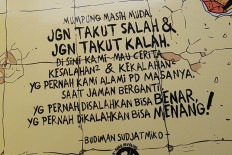 MUMPUNG MASIH MUDA,
JGN TAKUT SALAH &
JGN TAKUT KALAH.
DI SINI KAMI MAU CERITA
KESALAHAN² & KEKALAHAN²
YG PERNAH KAMI ALAMI PD MASANYA.
SAAT JAMAN BERGANTI,
YG PERNAH DISALAHKAN BISA BENAR,
YG PERNAH DIKALAHKAN BISA MENANG!
BUDIMAN SUDJATMIKO